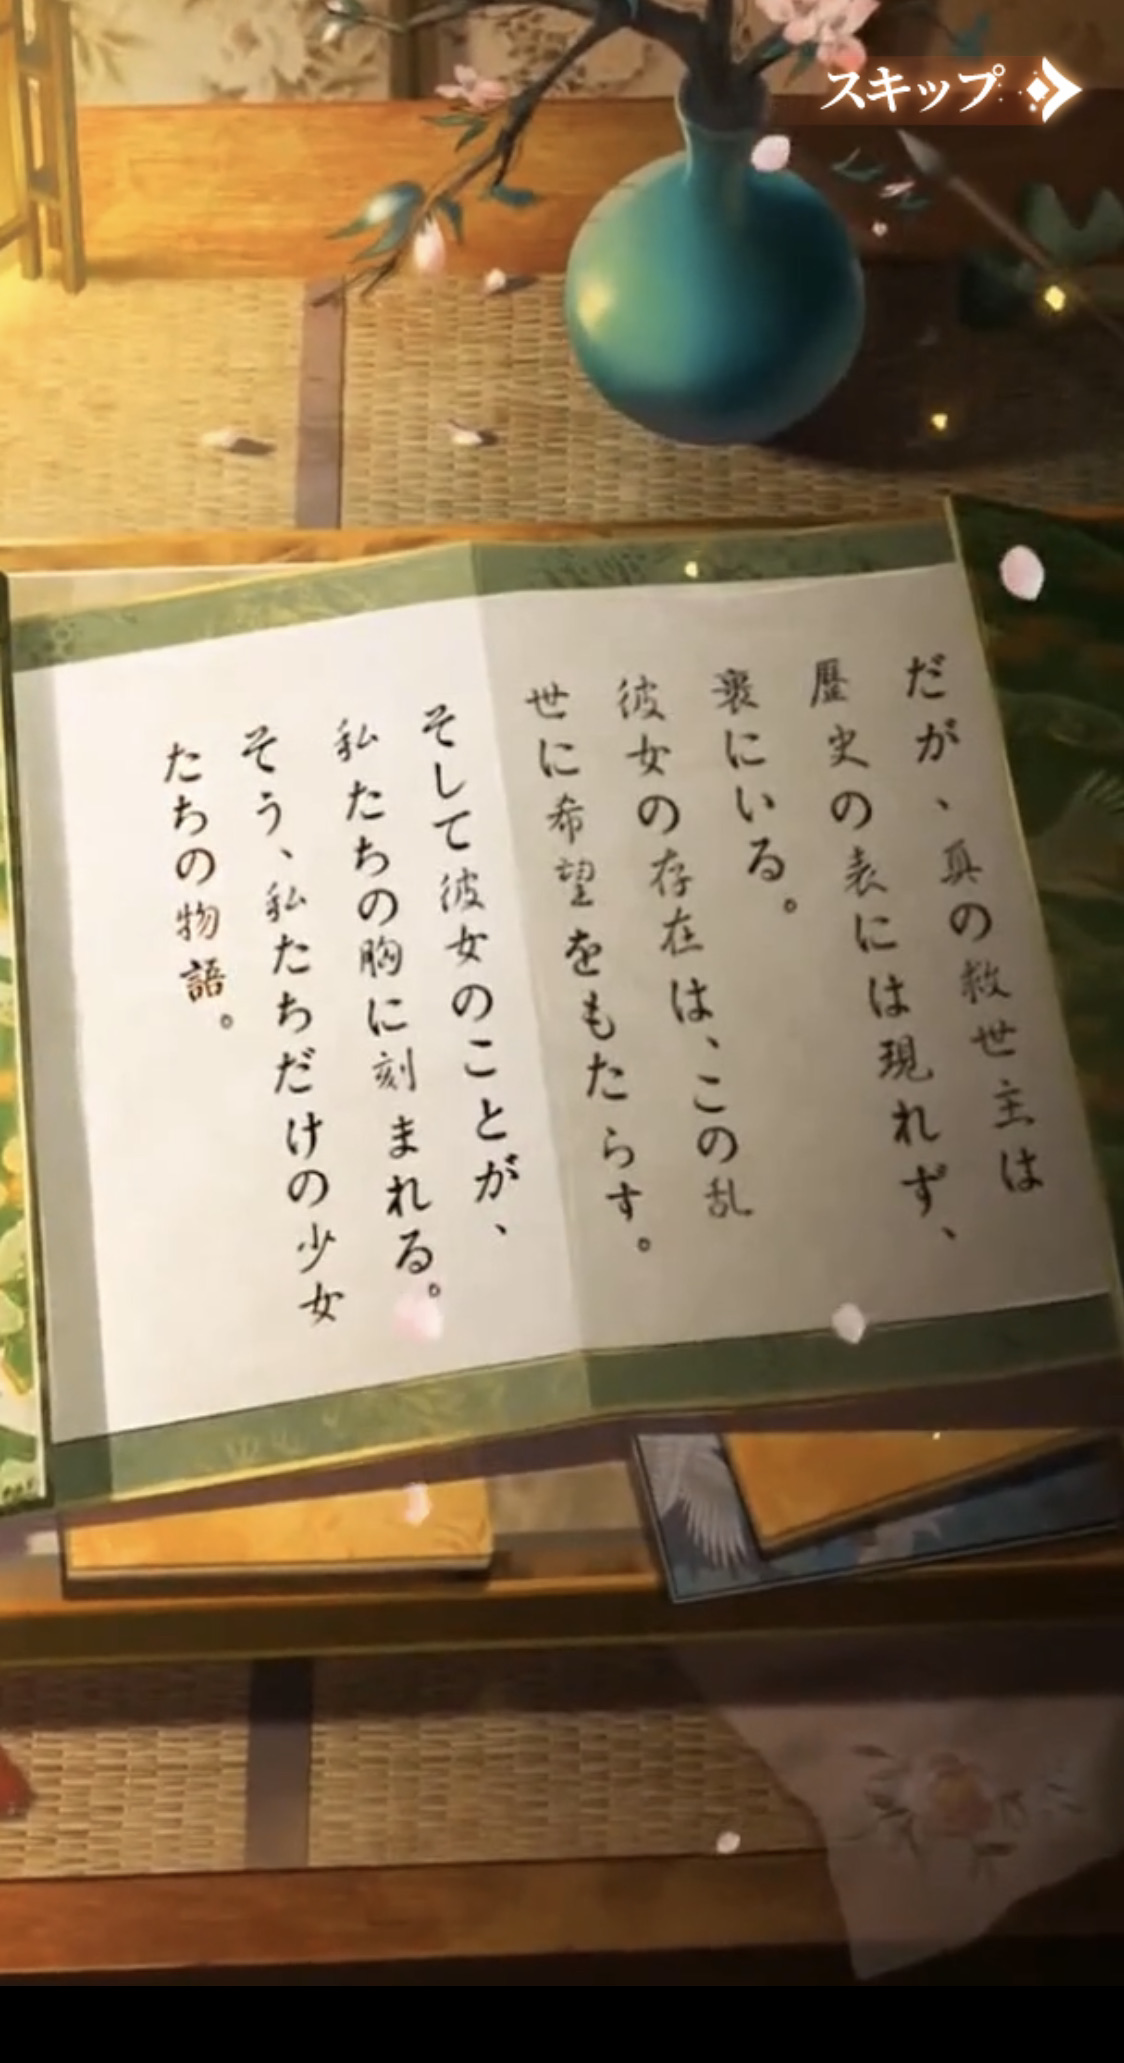 スキップ
だが、真の救世主は
歴史の表には現れず、
裏にいる。
彼女の存在は、この乱
世に希望をもたらす。
そして彼女のことが、
私たちの胸に刻まれる。
そう、私たちだけの少女
たちの物語。